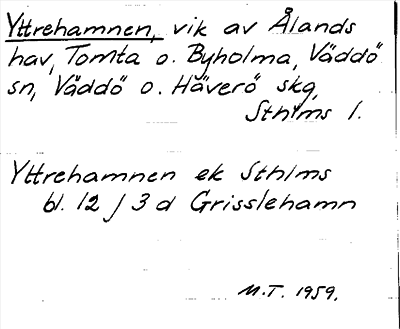 Yttrehamnen, vik av Ålands
hav, Tomta o. Byholma, Väddö
sn, Väddö o. Häverö skg,
Sthlms l.
Yttrehamnen ek Sthlms
bl. 12 J 3 d Grisslehamn
M.T. 1959.